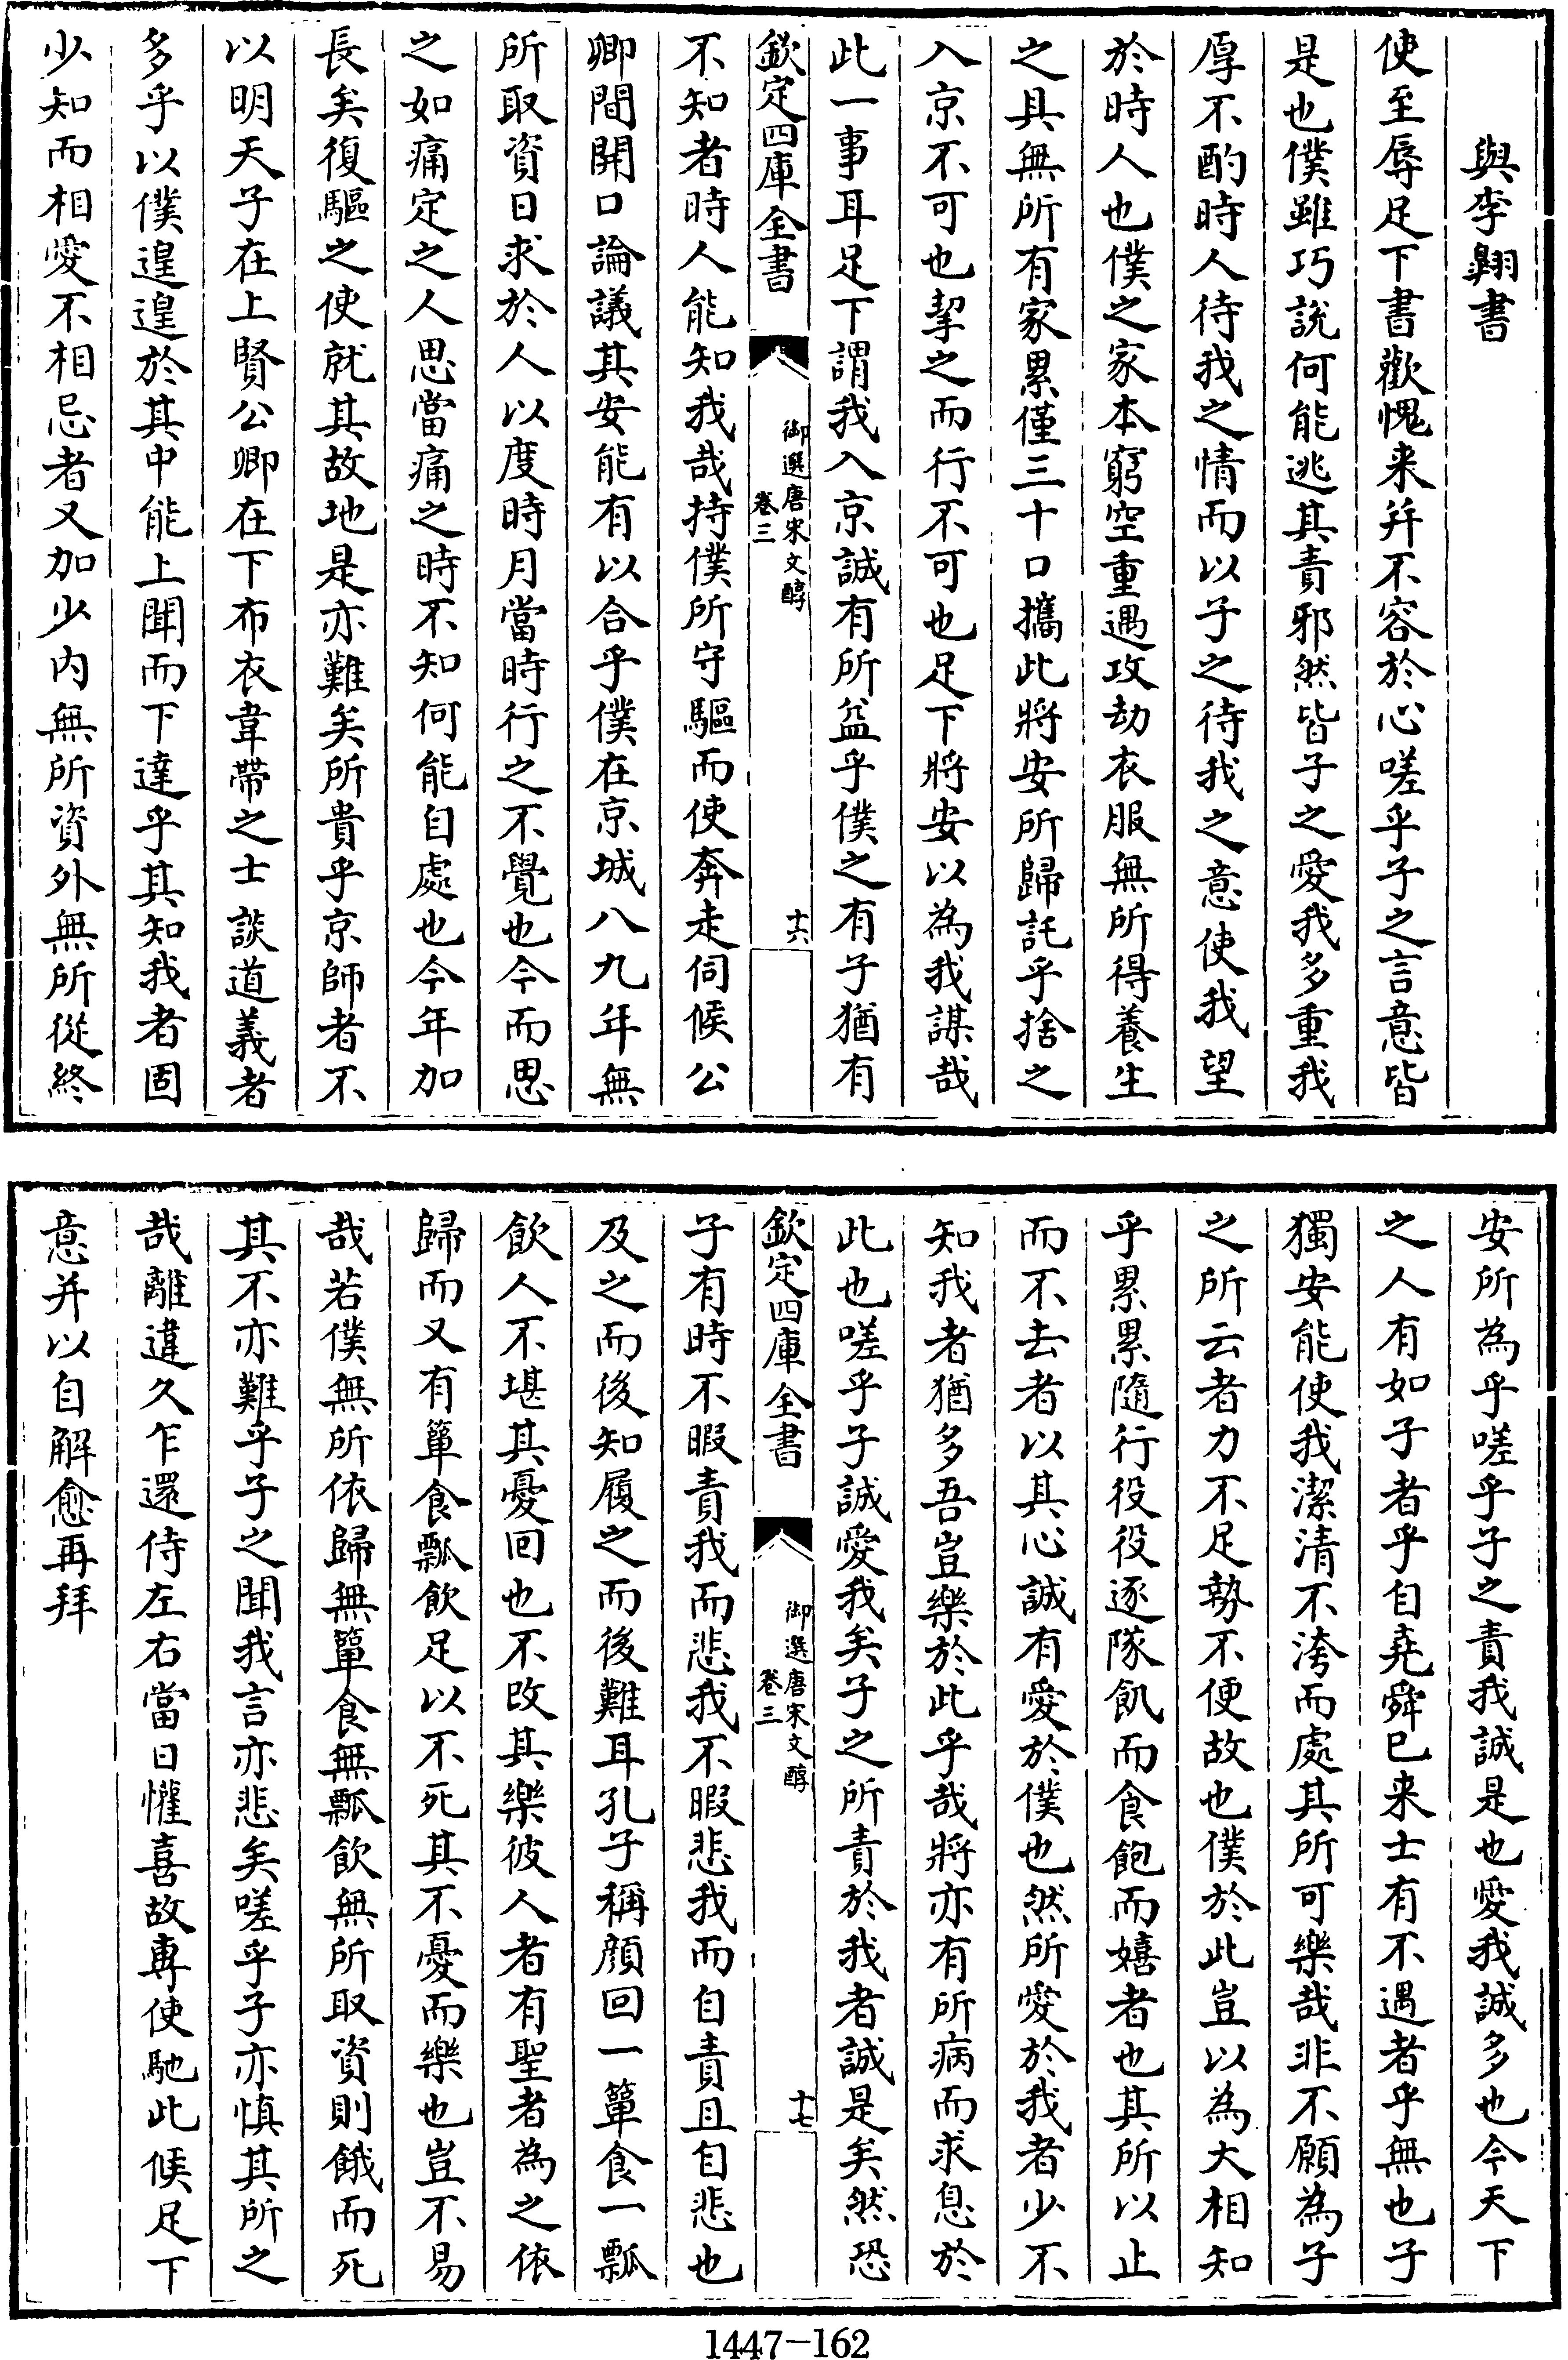 與李翺書
使至辱足下書歡愧来并不容於心嗟乎子之言意皆
是也僕雖巧説何能逃其責邪然皆子之愛我多重我
厚不酌時人待我之情而以子之待我之意使我望
於時人也僕之家本窮空重遇攻劫衣服無所得養生
之具無所有家累僅三十口攜此將安所歸託乎捨之
入京不可也挈之而行不可也足下將安以為我謀哉
此一事耳足下謂我入京誠有所益乎僕之有子猶有
欽定四庫全書
御選唐宋文醇
卷三
十六
不知者時人能知我哉持僕所守驅而使奔走伺候公
卿間開口論議其安能有以合乎僕在京城八九年無
所取資日求於人以度時月當時行之不覺也今而思
之如痛定之人思當痛之時不知何能自處也今年加
長矣復驅之使就其故地是亦難矣所貴乎京師者不
以明天子在上賢公卿在下布衣韋帶之士談道義者
多乎以僕遑遑於其中能上聞而下達乎其知我者固
少知而相愛不相忌者又加少内無所資外無所從終
安所為乎嗟乎子之責我誠是也愛我誠多也今天下
之人有如子者乎自堯舜已来士有不遇者乎無也子
獨安能使我潔清不洿而處其所可樂哉非不願為子
之所云者力不足勢不便故也僕於此豈以為大相知
乎累累隨行役役逐隊飢而食飽而嬉者也其所以止
而不去者以其心誠有愛於僕也然所愛於我者少不
知我者猶多吾豈樂於此乎哉將亦有所病而求息於
此也嗟乎子誠愛我矣子之所責於我者誠是矣然恐
欽定四庫全書
御選唐宋文醇
卷三
十七
子有時不暇責我而悲我不暇悲我而自責且自悲也
及之而後知履之而後難耳孔子稱顔回一簞食一瓢
飲人不堪其憂回也不改其樂彼人者有聖者為之依
歸而又有簞食瓢飲足以不死其不憂而樂也豈不易
哉若僕無所依歸無簞食無瓢飲無所取資則餓而死
其不亦難乎子之聞我言亦悲矣嗟乎子亦慎其所之
哉離違久乍還侍左右當日懽喜故專使馳此候足下
意并以自解愈再拜
1447-162